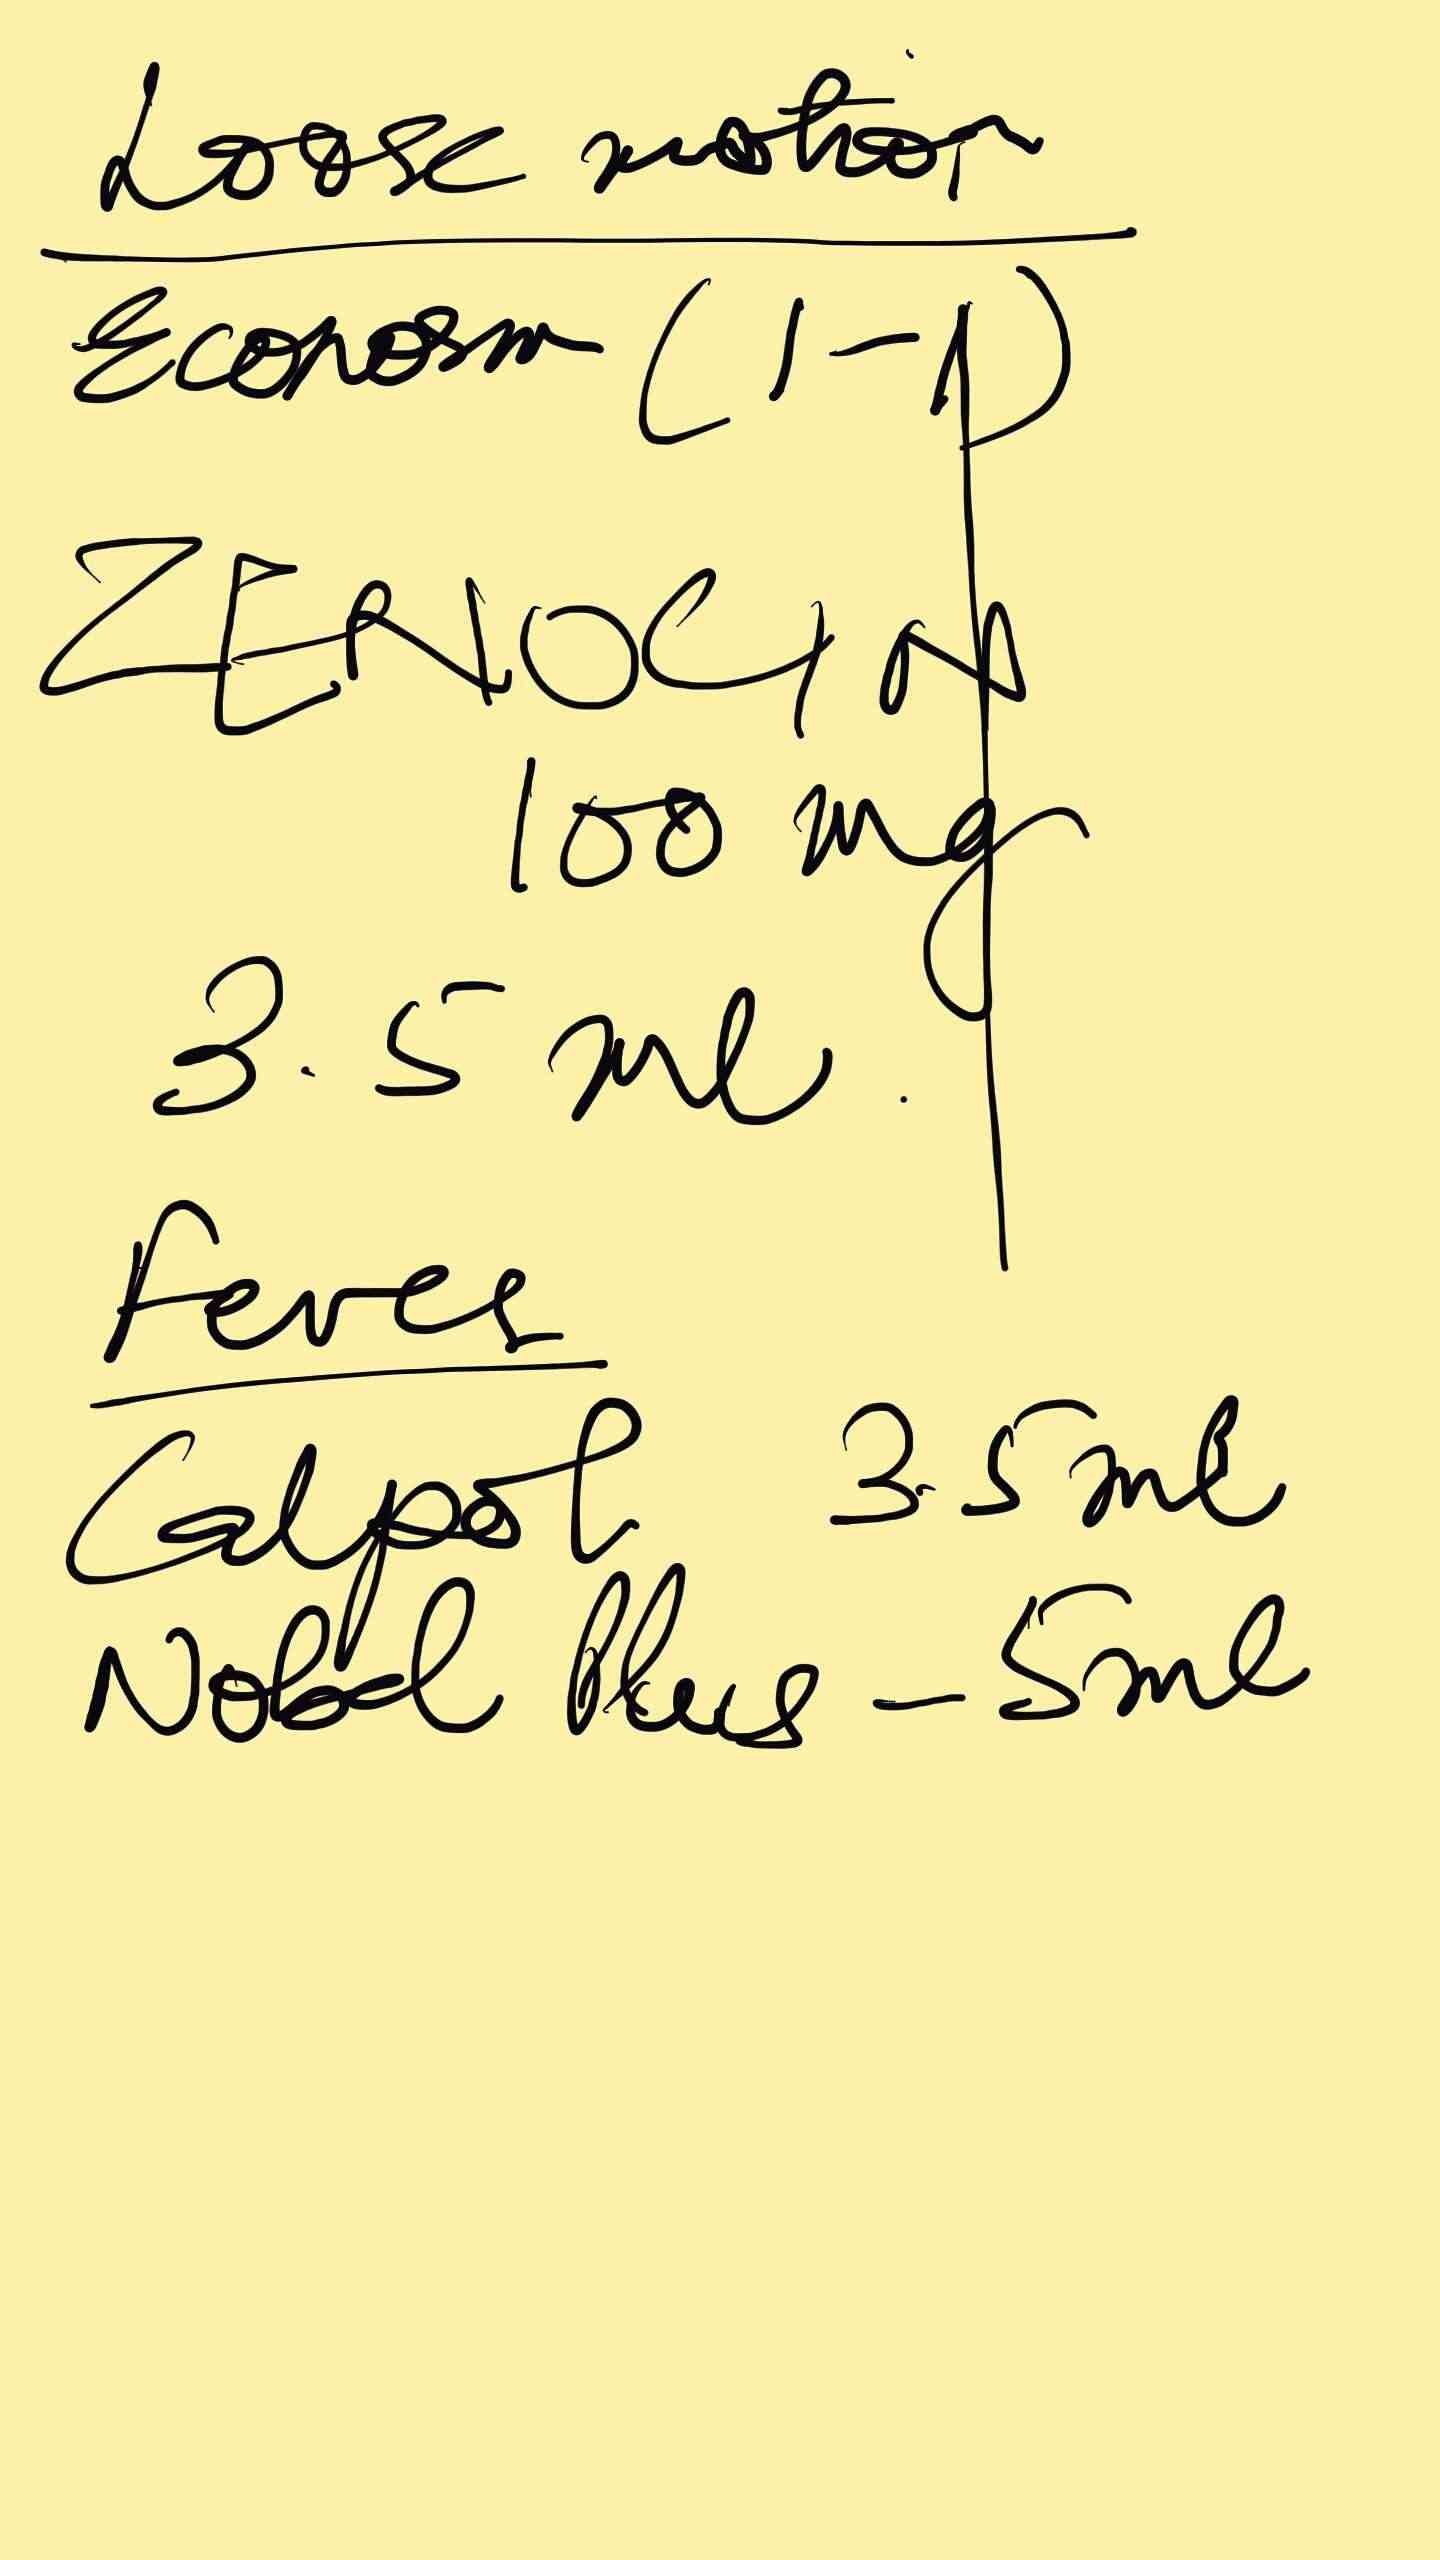 Loose motion
Econorm (1-1)
ZENOCIN
100 mg
3.5 ml.
Fever
Calpol 3.5ml
Nobel Plus - 5ml